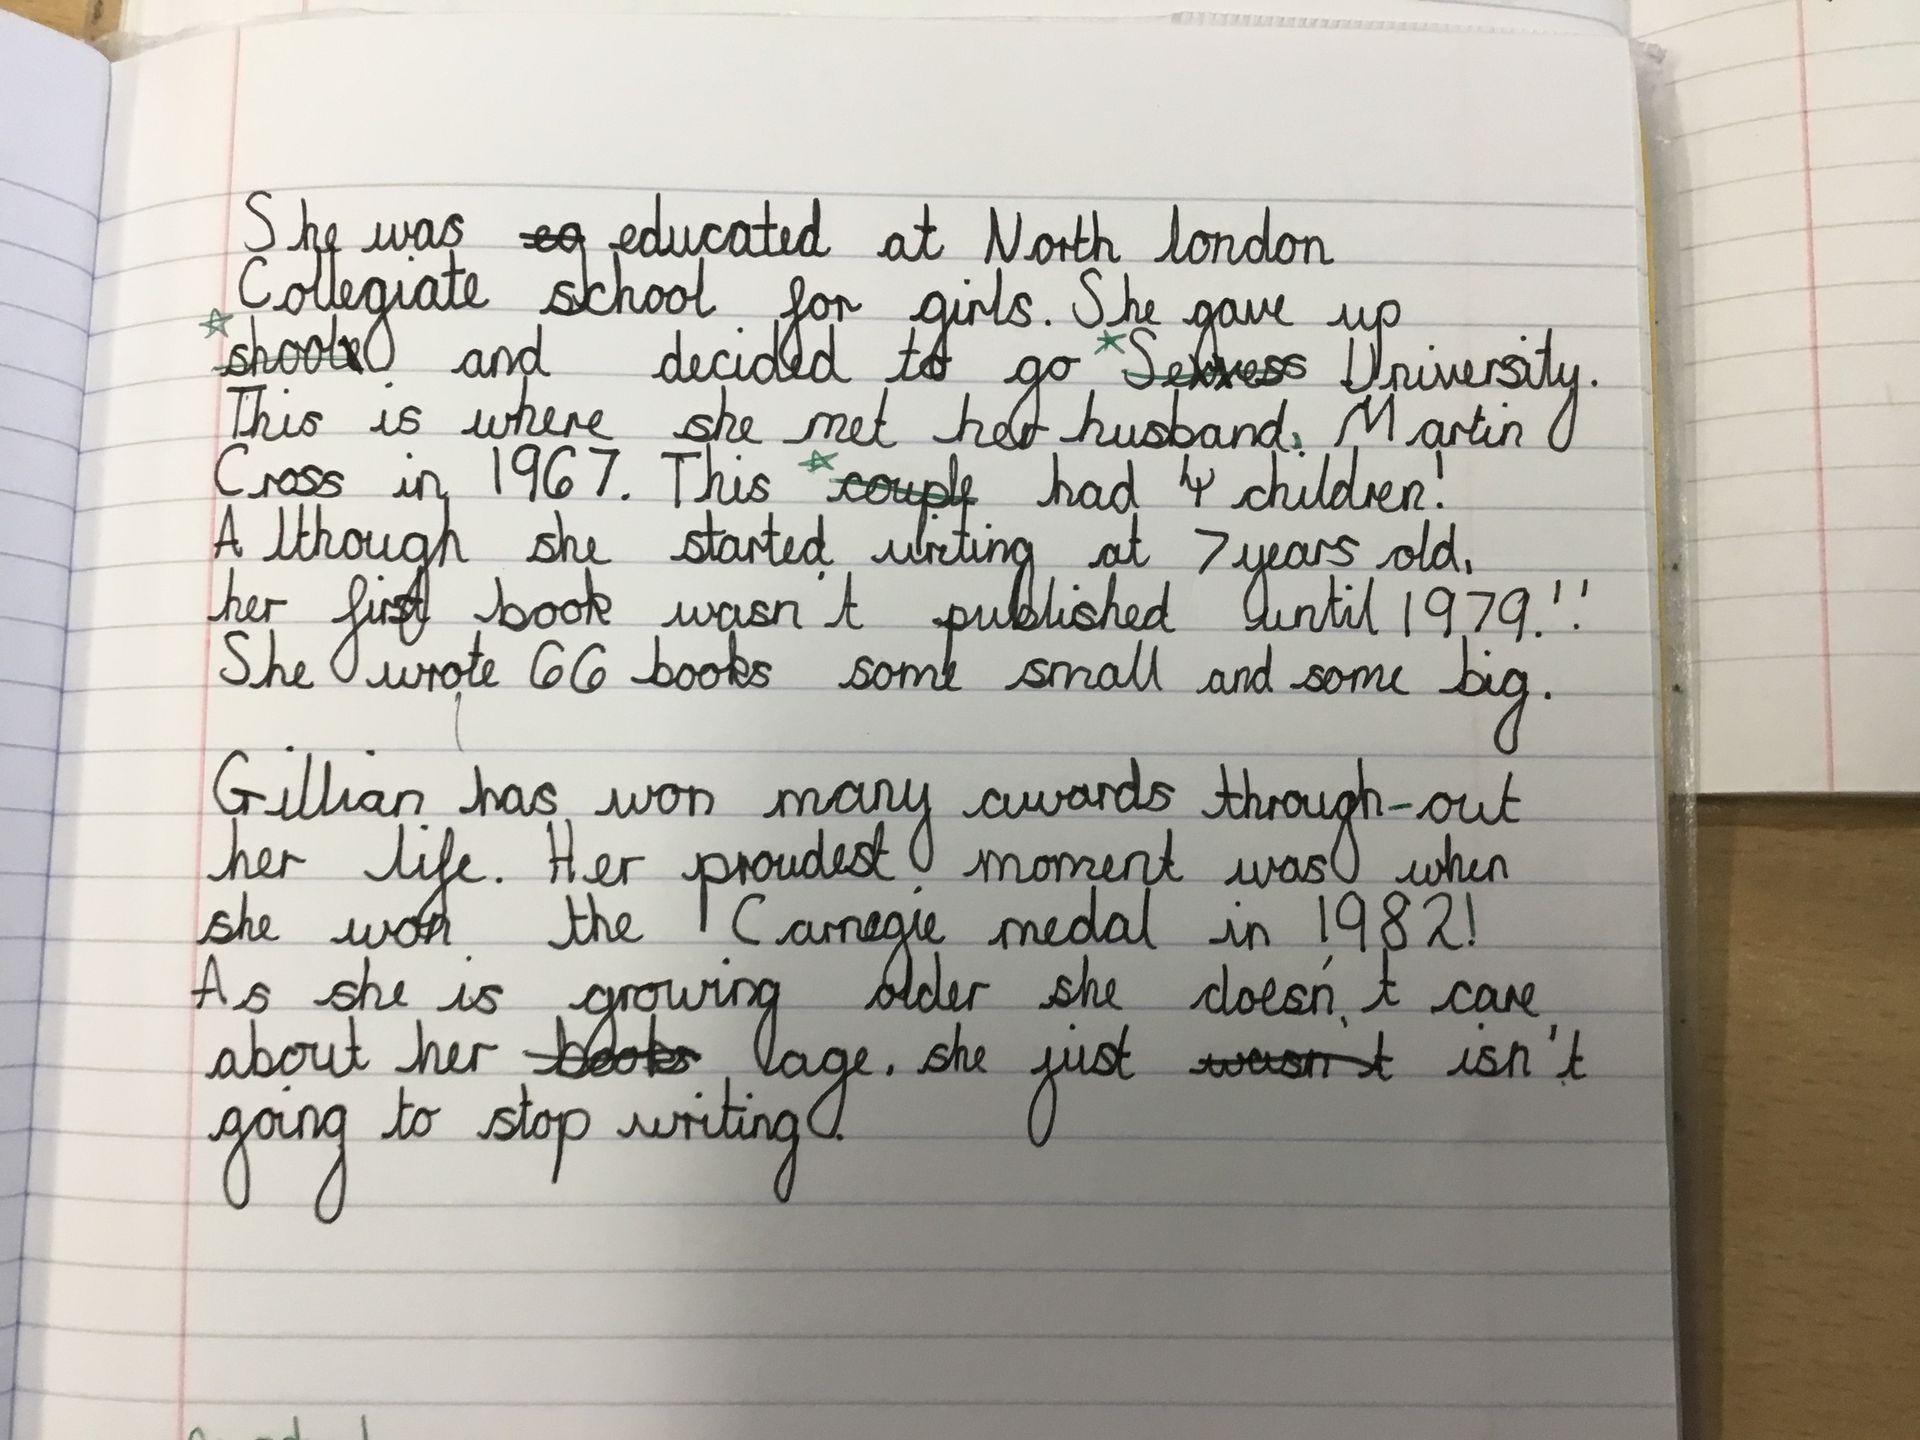 She was eg educated at North london
Collegiate school for girls. She gave up
shool and decided to go University.
This is where she met her husband, Martin
Cross in 1967. This couple had 4 children!
Although she started writing at 7 years old,
her first book wasn't published until 1979!!
She wrote 66 books some small and some big.
Gillian has won many awards through-out
her life. Her proudest moment was when
she won the Carnegie medal in 1982!
As she is growing older she doesn't care
about her books age. she just wasn't isn't
going to stop writing.